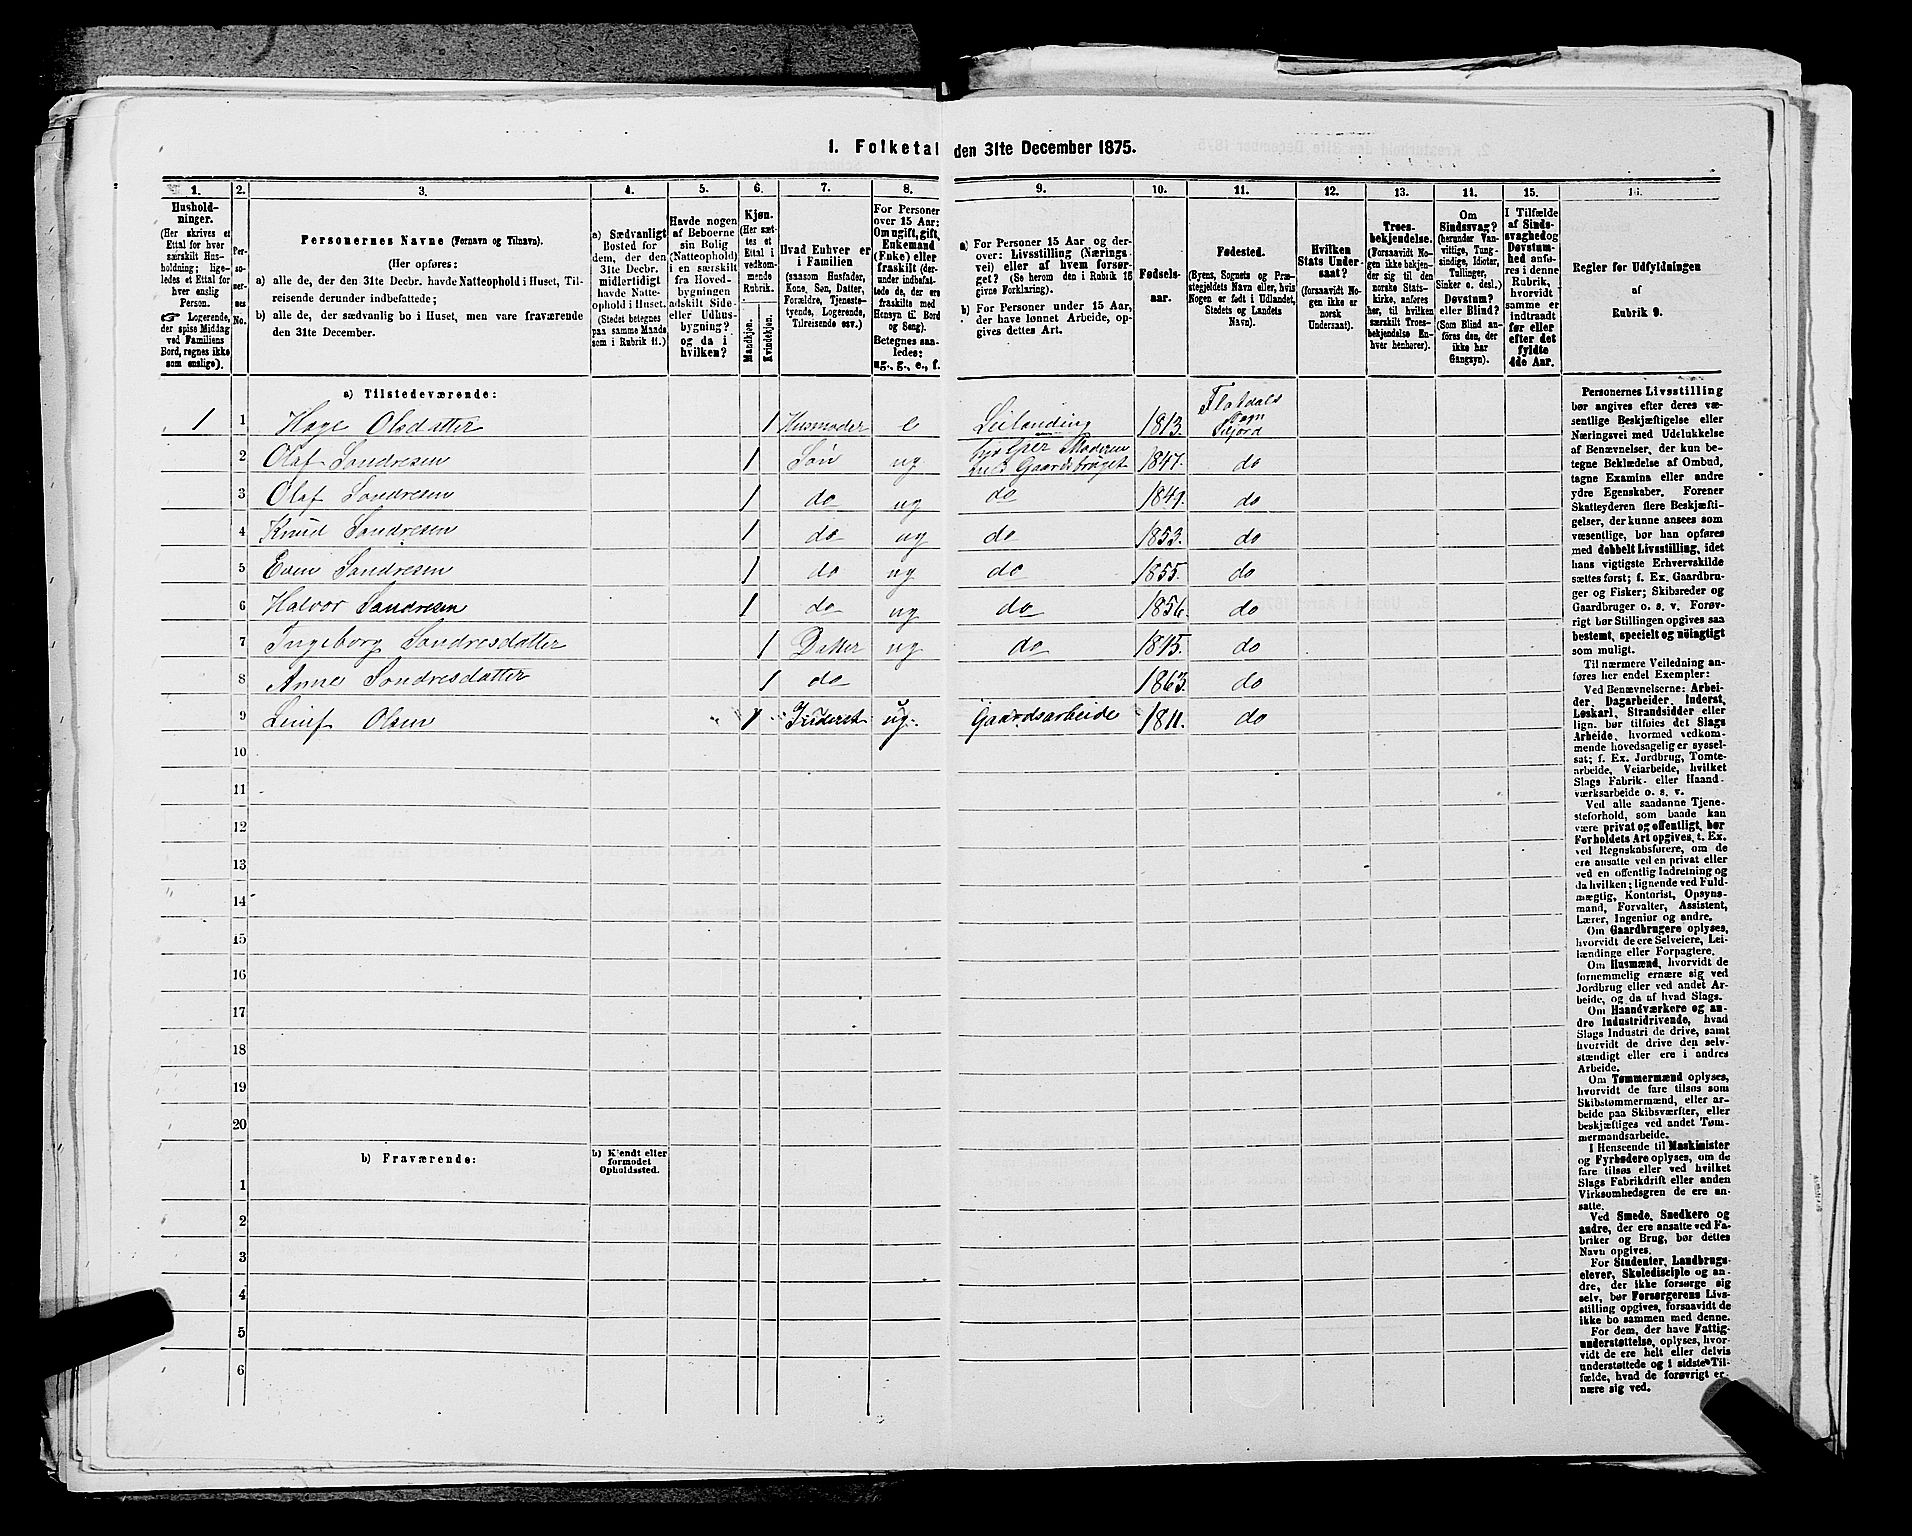 1. Folketal den 31te December 1875.
1. 2. 3. 4. 5. 6. 7. 8. 9. 10. 11. 12. 13. 14. 15. 16.
Husholdninger.
(Her skrives et
Ettal for hver
særskilt Husholdning;
ligeledes et Ettal for
hver enslig
Person.
☞ Logerende,
der spise Middag
ved Familiens
Bord, regnes ikke
som enslige).
Personernes No.
Personernes Navne (Fornavn og Tilnavn).
(Her opføres:
a) alle de, der den 31te Decbr. havde Natteophold i Huset, Tilreisende derunder indbefattede;
b) alle de, der sædvanlig bo i Huset, men vare fraværende
den 31te December.
a) Sædvanligt
Bosted for
dem, der den
31te Decbr.
midlertidigt
havde Natteophold i Huset.
(Stedet betegnes
paa samme Maade,
som i Rubrik 11.)
Havde nogen
af Beboerne
sin Bolig
(Natteophold)
i en særskilt
fra Hovedbygningen
adskilt Side-
eller Udhusbygning?
og da i
hvilken?
Kjøn.
(Her sættes et
Ettal i
vedkommende
Rubrik.
Mandkjøn.
Kvindekjøn.
Hvad Enhver er
i Familien
(saasom Husfader,
Kone, Søn, Datter,
Forældre, Tjenestetyende, Logerende,
Tilreisende osv.)
For Personer
over 15 Aar:
Om ugift, gift,
Enkemand
(Enke) eller
fraskilt (derunder indbefattede de, der ere
fraskilte med
Hensyn til Bord
og Seng).
Betegnes saaledes:
ug., g., e., f.
a) For Personer 15 Aar og derover: Livsstilling (Næringsvei) eller af hvem forsørget? (Se herom den i Rubrik 16
givne Forklaring).
b) For Personer under 15 Aar,
der have lønnet Arbeide, opgives dettes Art.
Fødselsaar.
Fødested.
(Byens, Sognets og Præstegjeldets Navn eller, hvis
Nogen er født i Udlandet,
Stedets og Landets
Navn).
Hvilken
Stats Undersaat?
(forsaavidt Nogen ikke er
norsk
Undersaat).
Troesbekjendelse.
(Forsaavidt Nogen ikke bekjender sig til den
norske Statskirke, anføres
her, til hvilken
særskilt Troesbekjendelse Enhver henhører).
Om
Sindssvag?
(herunder Vanvittige, Tungsindige, Idioter,
Tullinger,
Sinker o. desl.)
Døvstum?
eller Blind?
(Som Blind anføres den, der
ikke har
Gangsyn).
I Tilfælde
af Sindssvaghed og
Døvstumhed anføres i denne
Rubrik,
hvorvidt
samme er
indtraadt
før eller
efter det
fyldte
4de Aar.
Regler for Udfyldningen
af
Rubrik 9.
a) Tilstedeværende:
1 1 Olsdatter 1 Husmoder e 1813. Flatdals Sogn
2 Olaf Sondresen 1 Søn ug hjelper Moderen med Gaardsbruget 1847. do
3 Olaf Sondresen 1 do ug do 1849. do
4 Knud Sondresen 1 do ug do 1853. do
5 Even Sondresen 1 do ug do 1855. do
6 Halvor Sondresen 1 do ug do 1856. do
7 Ingeborg Sondresdatter 1 Datter ug do 1845. do
8 Anne Sondresdatter 1 do 1863. do
9 Olsen 1 Inderst ug. Gaardsarbeide 1811. do
10
11
12
13
14
15
16
17
18
19
20
b) Fraværende:
b) Kjendt eller
formodet
Opholdssted.
1
2
3
4
5
6
Personernes Livsstilling
bør angives efter deres væsentlige Beskjæftigelse eller
Næringsvei med Udelukkelse
af Benævnelser, der kun betegne Beklædelse af Ombud,
tagne Examina eller andre
ydre Egenskaber. Forener
Skatteyderen flere Beskjæftigelser, der kunne ansees som
væsentlige, bør han opføres
med dobbelt Livsstilling, idet
hans vigtigste Erhvervskilde
sættes først; f. Ex. Gaardbruger og Fisker; Skibsreder og
Gaardbruger o. s. v. Forøvrigt bør Stillingen opgives saa
bestemt, specielt og nöiagtigt
som muligt.
Til nærmere Veiledning anføres her endel Exempler:
Ved Benævnelserne: Arbeider, Dagarbeider, Inderst,
Løskarl, Strandsidder eller
lign. bør tilføies det Slags
Arbeide, hvormed vedkommende hovedsagelig er sysselsat; f. Ex. Jordbrug, Tomtearbeide, Veiarbeide, hvilket
Slags Fabrik- eller Haandværksarbeide o. s. v.
Ved alle saadanne Tjenesteforhold, som baade kan
være privat og offentligt, bør
Forholdets Art opgives, t. Ex.
ved Regnskabsførere, om de
ere ansatte ved en privat eller
ved en offentlig Indretning og
da hvilken; lignende ved Fuldmægtig, Kontorist, Opsynsmand, Forvalter, Assistent,
Lærer, Ingeniør og andre.
Om Gaardbrugere oplyses,
hvorvidt de ere Selveiere, Leilændinge eller Forpagtere.
Om Husmænd, hvorvidt de
fornemmelig ernære sig ved
Jordbrug eller ved andet Arbeide, og da af hvad Slags.
Om Haandværkere og andre Industridrivende, hvad
Slags Industri de drive, samt
hvorvidt de drive den selvstændigt eller ere i andres
Arbeide.
Om Tømmermænd oplyses,
hvorvidt de fare tilsøs som
Skibstømmermænd, eller arbeide paa Skibsværfter, eller
beskjæftiges ved andet Tømmermandsarbeide.
I Henseende til Maskinister
og Fyrbødere oplyses, om de
fare tilsøs eller ved hvilket
Slags Fabrikdrift eller anden
Virksomhedsgren de ere ansatte.
Ved Smede, Snedkere og
andre, der ere ansatte ved Fabriker og Brug, bør dettes
Navn opgives.
For Studenter, Landbrugselever, Skoledisciple og andre, der ikke forsørge sig
selv, bør Forsørgerens Livsstilling opgives, forsaavidt de
ikke bo sammen med denne.
For dem, der have Fattigunderstøttelse, oplyses, hvorvidt de ere helt eller delvis
understøttede og i sidste Tilfælde, hvad de forøvrigt ernære sig ved.